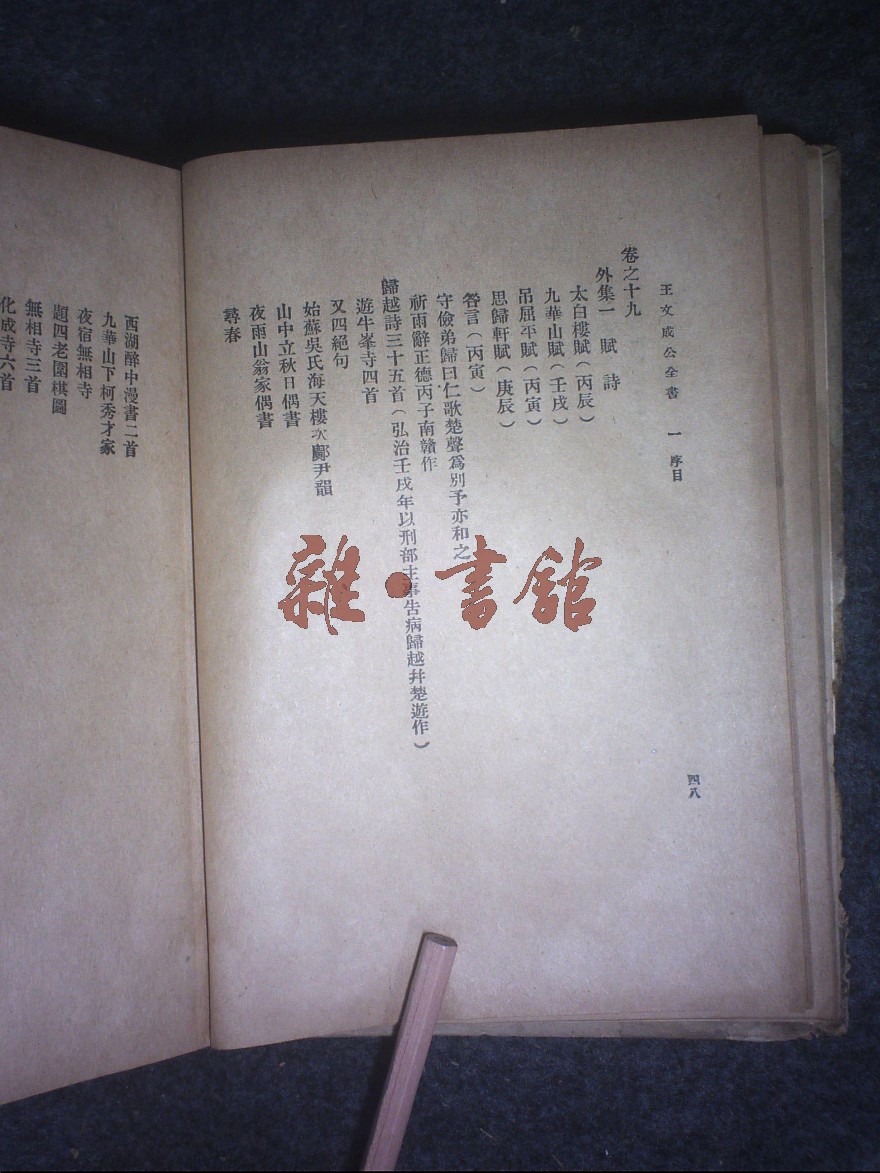 王文成公全書 一 序目
四八
卷之十九
外集一 賦 詩
太白樓賦(丙辰)
九華山賦(壬戌)
吊屈平賦(丙寅)
思歸軒賦(庚辰)
咎言(丙寅)
守儉弟歸曰仁歌楚聲爲別予亦和之
祈雨辭正德丙子南贛作
歸越詩三十五首(弘治壬戌年以刑部主事告病歸越幷楚遊作)
遊牛峯寺四首
又四絕句
始蘇吳氏海天樓次鄺尹韻
山中立秋日偶書
夜雨山翁家偶書
尋春
西湖醉中漫書二首
九華山下柯秀才家
夜宿無相寺
題四老圍棋圖
無相寺三首
化成寺六首
雜·書館